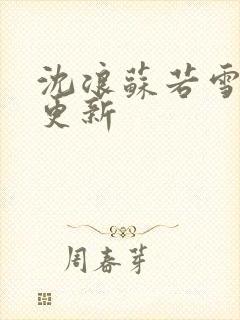 沈浪蘇若雪
更新
周春芽